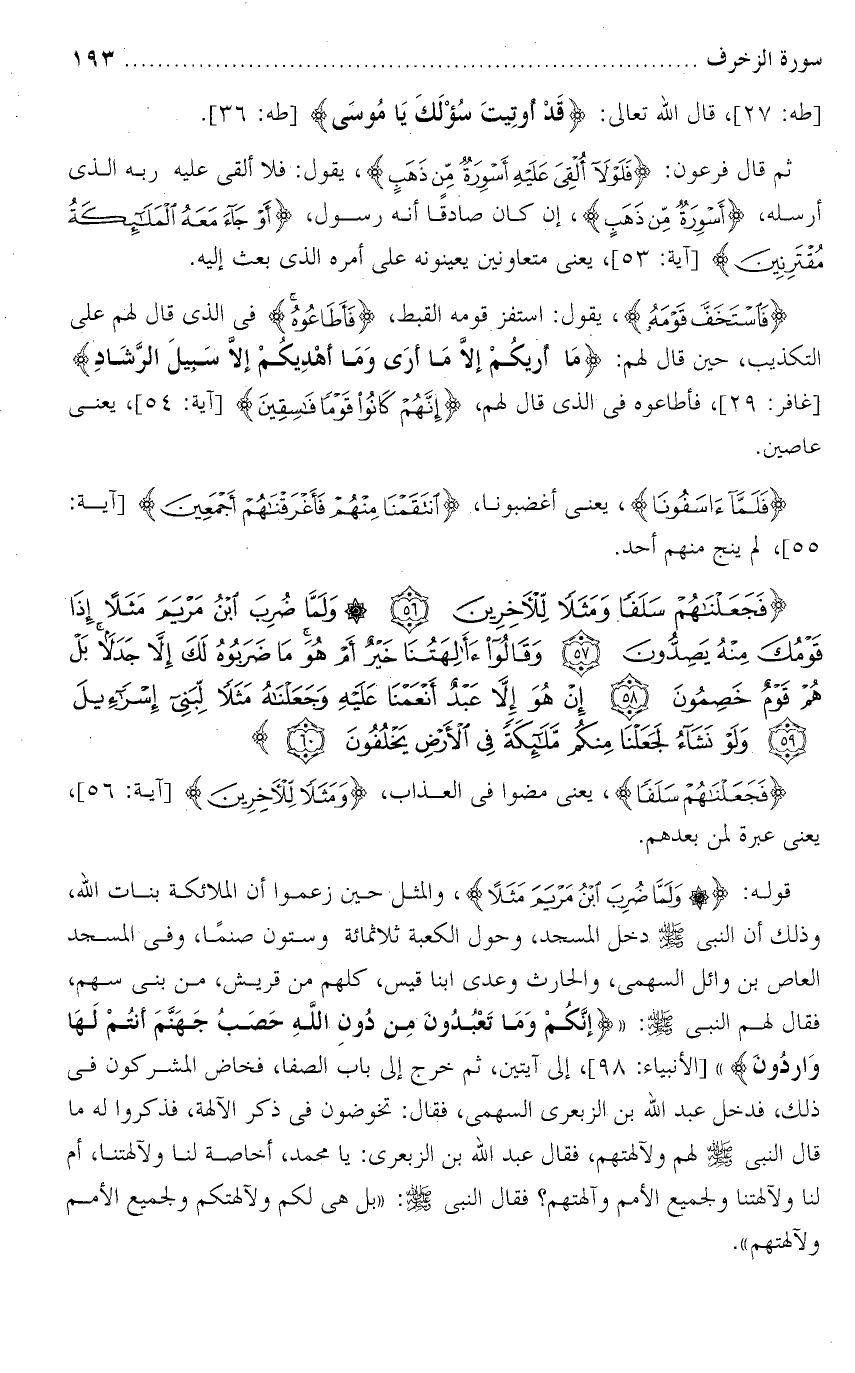 سورة الزخرف ........................................................................ ١٩٣
[طه: ٢٧]، قال الله تعالى: ﴿قَدْ أُوتِيتَ سُؤْلَكَ يَا مُوسَى﴾ [طه: ٣٦].
ثم قال فرعون: ﴿فَلَوْلَآ أُلْقِىَ عَلَيْهِ أَسْوِرَةٌ مِّن ذَهَبٍ﴾، يقول: فلا ألقى عليه ربه الذى
أرسله، ﴿أَسْوِرَةٌ مِّن ذَهَبٍ﴾، إن كان صادقًا أنه رسول، ﴿أَوْ جَآءَ مَعَهُ ٱلْمَلَـٰٓئِكَةُ
مُقْتَرِنِينَ﴾ [آية: ٥٣]، يعنى متعاونين يعينونه على أمره الذى بعث إليه.
﴿فَٱسْتَخَفَّ قَوْمَهُۥ﴾، يقول: استفز قومه القبط، ﴿فَأَطَاعُوهُ ۚ﴾ فى الذى قال لهم على
التكذيب، حين قال لهم: ﴿مَا أُرِيكُمْ إِلاَّ مَا أَرَى وَمَا أَهْدِيكُمْ إِلاَّ سَبِيلَ الرَّشَادِ﴾
[غافر: ٢٩]، فأطاعوه فى الذى قال لهم، ﴿إِنَّهُمْ كَانُوا۟ قَوْمًا فَـٰسِقِينَ﴾ [آية: ٥٤]، يعنى
عاصين.
﴿فَلَمَّآ ءَاسَفُونَا﴾، يعنى أغضبونا، ﴿ٱنتَقَمْنَا مِنْهُمْ فَأَغْرَقْنَـٰهُمْ أَجْمَعِينَ﴾ [آية:
٥٥]، لم ينج منهم أحد.
﴿فَجَعَلْنَـٰهُمْ سَلَفًا وَمَثَلًا لِّلْـَٔاخِرِينَ ٥٦ ۞ وَلَمَّا ضُرِبَ ٱبْنُ مَرْيَمَ مَثَلًا إِذَا
قَوْمُكَ مِنْهُ يَصِدُّونَ ٥٧ وَقَالُوٓا۟ ءَأَـٰلِهَتُنَا خَيْرٌ أَمْ هُوَ ۚ مَا ضَرَبُوهُ لَكَ إِلَّا جَدَلًۢا ۚ بَلْ
هُمْ قَوْمٌ خَصِمُونَ ٥٨ إِنْ هُوَ إِلَّا عَبْدٌ أَنْعَمْنَا عَلَيْهِ وَجَعَلْنَـٰهُ مَثَلًا لِّبَنِىٓ إِسْرَٰٓءِيلَ
٥٩ وَلَوْ نَشَآءُ لَجَعَلْنَا مِنكُم مَّلَـٰٓئِكَةً فِى ٱلْأَرْضِ يَخْلُفُونَ ٦٠ ﴾
﴿فَجَعَلْنَـٰهُمْ سَلَفًا﴾، يعنى مضوا فى العذاب، ﴿وَمَثَلًا لِّلْـَٔاخِرِينَ﴾ [آية: ٥٦]،
يعنى عبرة لمن بعدهم.
قوله: ﴿۞ وَلَمَّا ضُرِبَ ٱبْنُ مَرْيَمَ مَثَلًا﴾، والمثل حين زعموا أن الملائكة بنات الله،
وذلك أن النبى ﷺ دخل المسجد، وحول الكعبة ثلاثمائة وستون صنمًا، وفى المسجد
العاص بن وائل السهمى، والحارث وعدى ابنا قيس، كلهم من قريش، من بنى سهم،
فقال لهم النبى ﷺ: «﴿إِنَّكُمْ وَمَا تَعْبُدُونَ مِن دُونِ اللَّهِ حَصَبُ جَهَنَّمَ أَنتُمْ لَهَا
وَارِدُونَ﴾» [الأنبياء: ٩٨]، إلى آيتين، ثم خرج إلى باب الصفا، فخاض المشركون فى
ذلك، فدخل عبد الله بن الزبعرى السهمى، فقال: تخوضون فى ذكر الآلهة، فذكروا له ما
قال النبى ﷺ لهم ولآلهتهم، فقال عبد الله بن الزبعرى: يا محمد، أخاصة لنا ولآلهتنا، أم
لنا ولآلهتنا ولجميع الأمم وآلهتهم؟ فقال النبى ﷺ: «بل هى لكم ولآلهتكم ولجميع الأمم
ولآلهتهم».